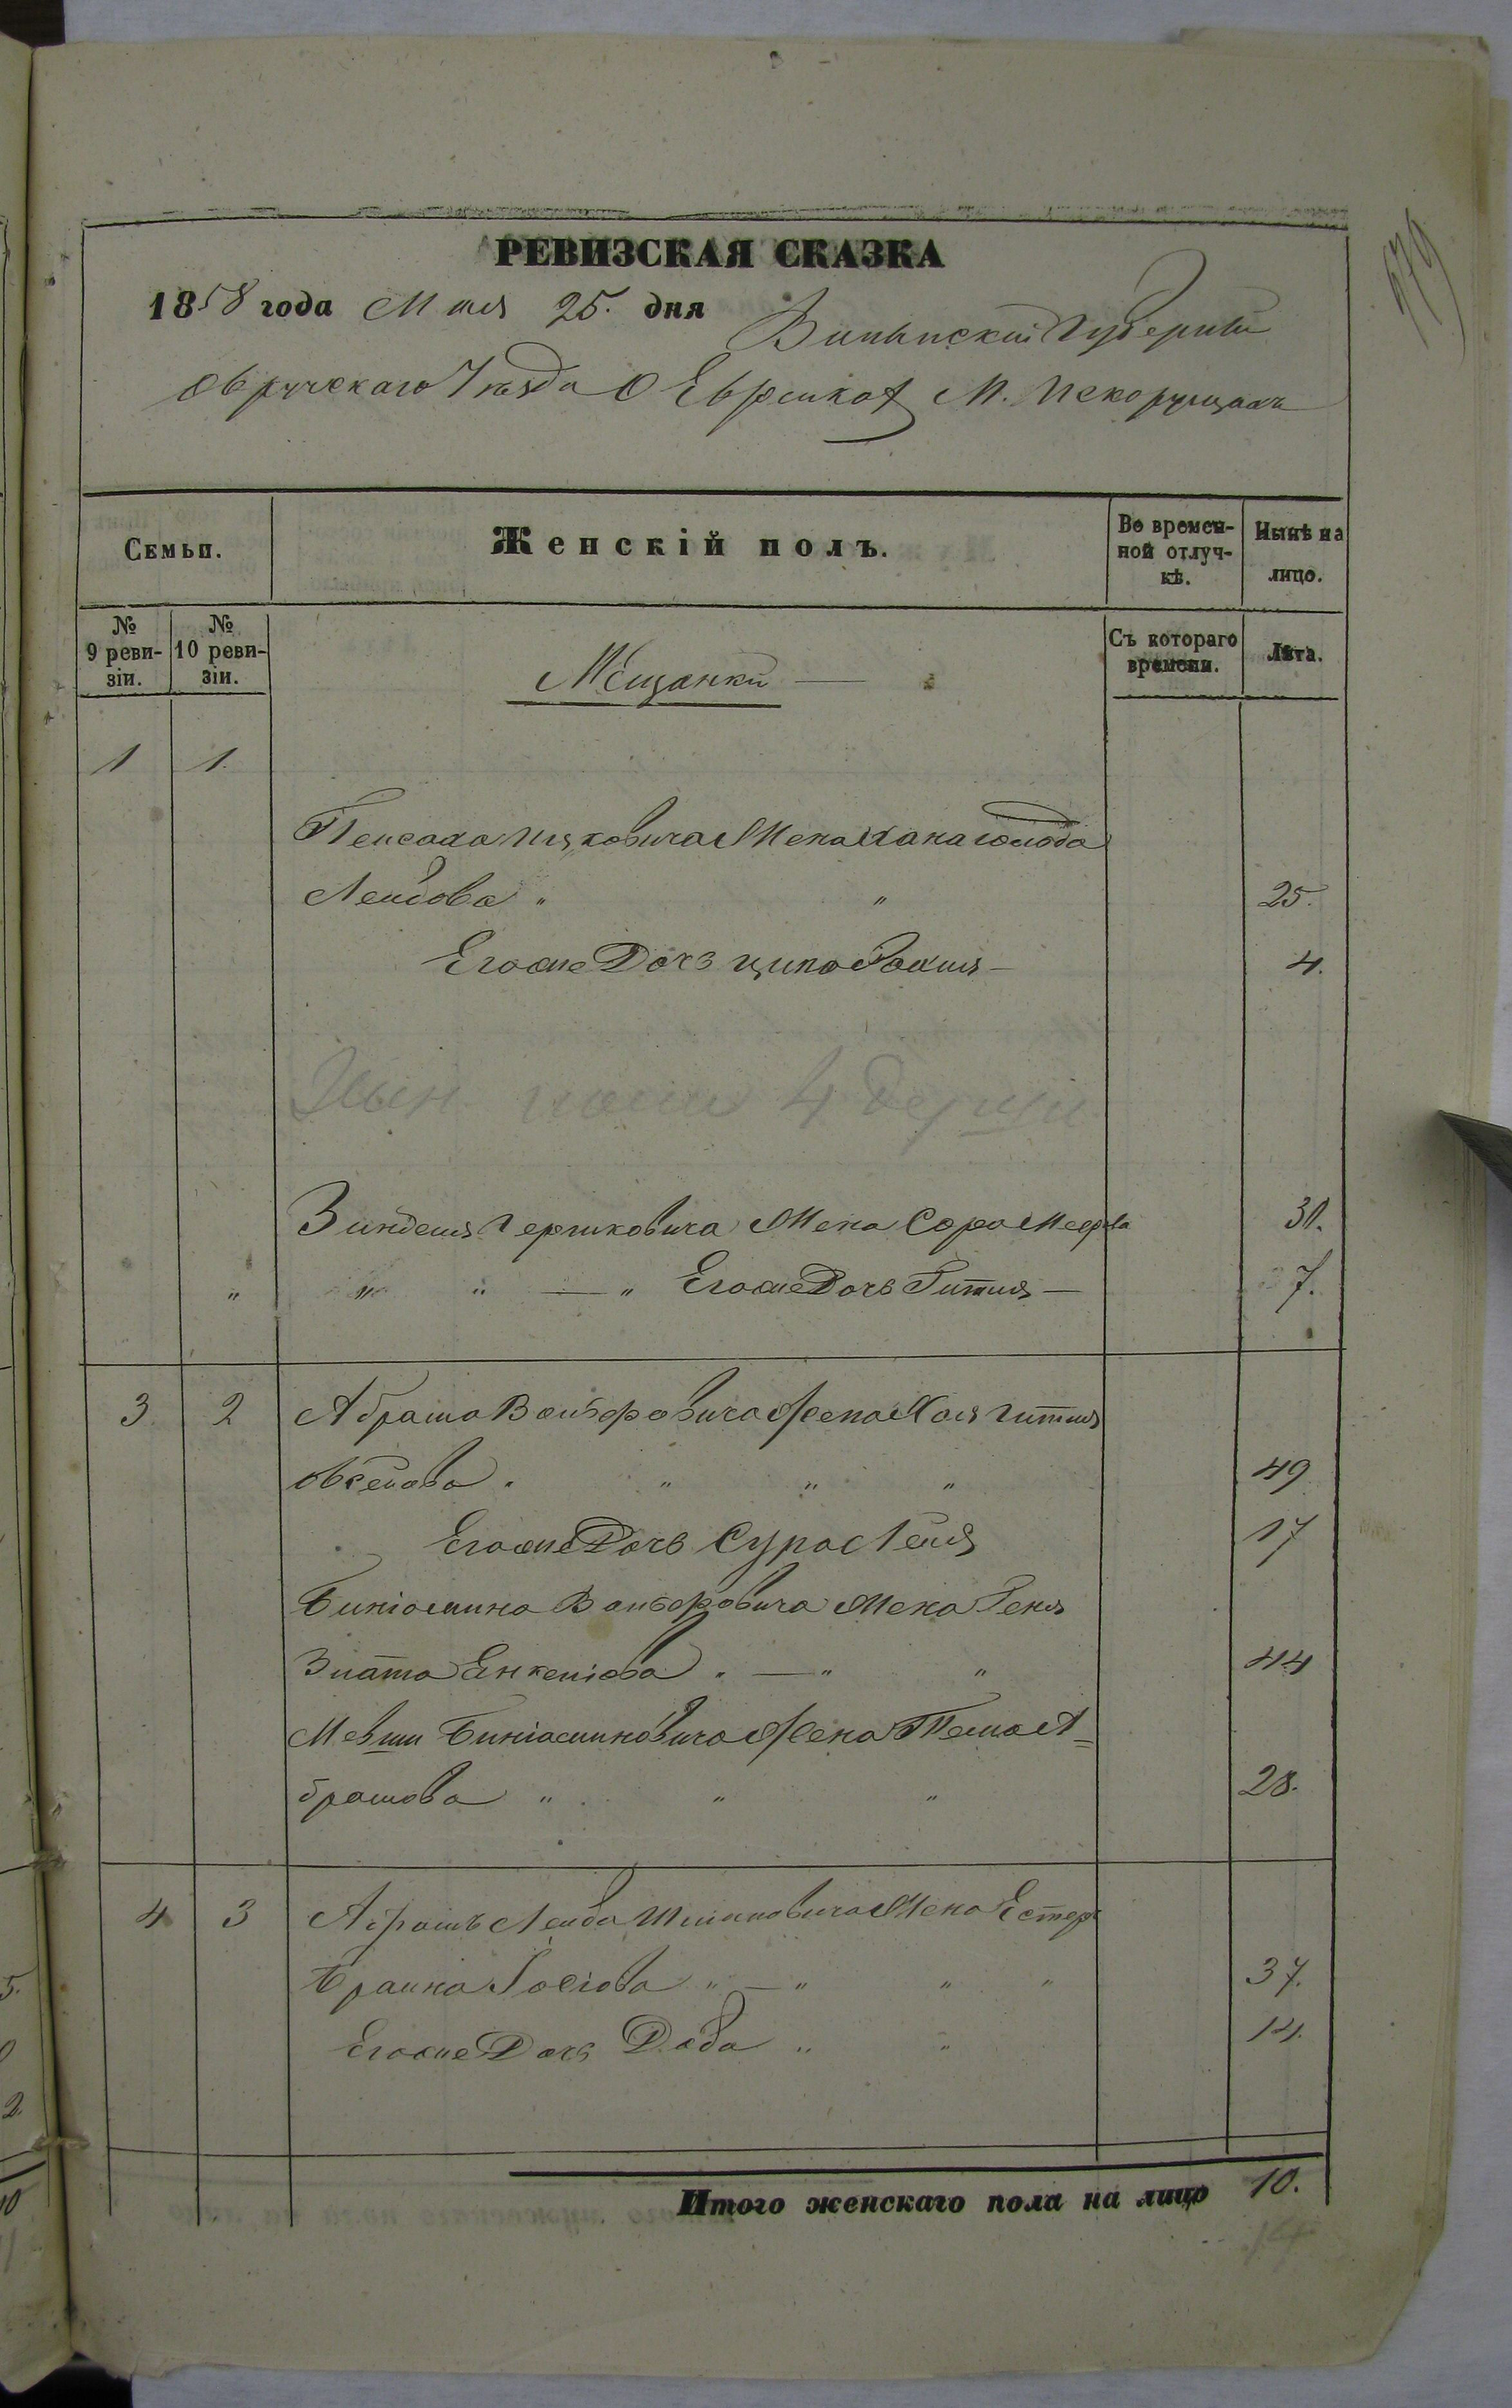 РЕВИЗСКАЯ СКАЗКА
1858 года Мая 25. дня
Волынской Губернiи
Овручскаго Уѣзда О Евреяхъ М. Искорущахъ
Семьи. Женскiй полъ. Во временной отлучкѣ. Нынѣ на лицо.
№ 9 ревизiи. № 10 ревизiи. Съ котораго времени. Лѣта.
Мещанки —
1 1.
Пейсаха Ицковича Жена Хана
Лейбова " " 25.
Егоже Дочь Ципа — 4.
4
Зинделя Гершковича Жена Сора 31.
" " " — " Егоже Дочь Гитля — 7.
3 2 Абрама Вольфовича Жена Хая Гитля
" " " 49
Егоже Дочь Сура Лея 17
Бинiамина Вольфовича Жена Геня
Злата Янкелiова " — " " 44
Мевши Бинiаминовича Жена Тема А=
брамова " " " 28.
4 3 Абрамъ Лейба Жена Естеръ
Брайна Iосiова " — " " " 37.
Егоже Дочь Доба " " 14.
Итого женскаго пола на лицо 10.